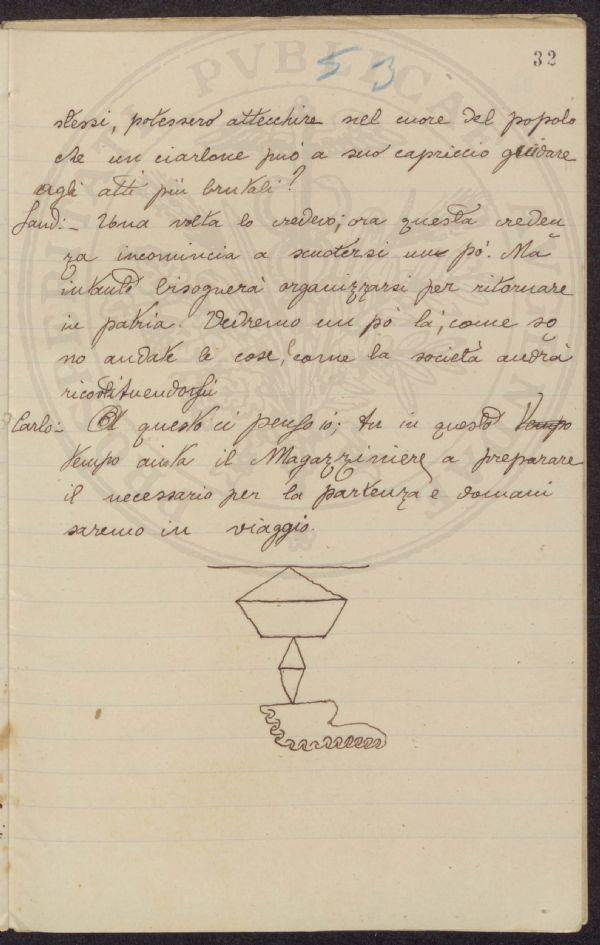 53
32
stessi, potessero attecchire nel cuore del popolo
che un ciarlone può a suo capriccio guidare
agli atti più brutali?
Land:- Una volta lo credevo; ora questa creden
za incomincia a scuotersi un pò. Ma
intanto bisognerà organizzarsi per ritornare
in patria. Vedremo un pò là, come so
no andate le cose, come la società andrà
ricostituendosi
Carlo:- A questo ci penso io; tu in questo tempo
tempo aiuta il Magazziniere a preparare
il necessario per la partenza e domani
saremo in viaggio.